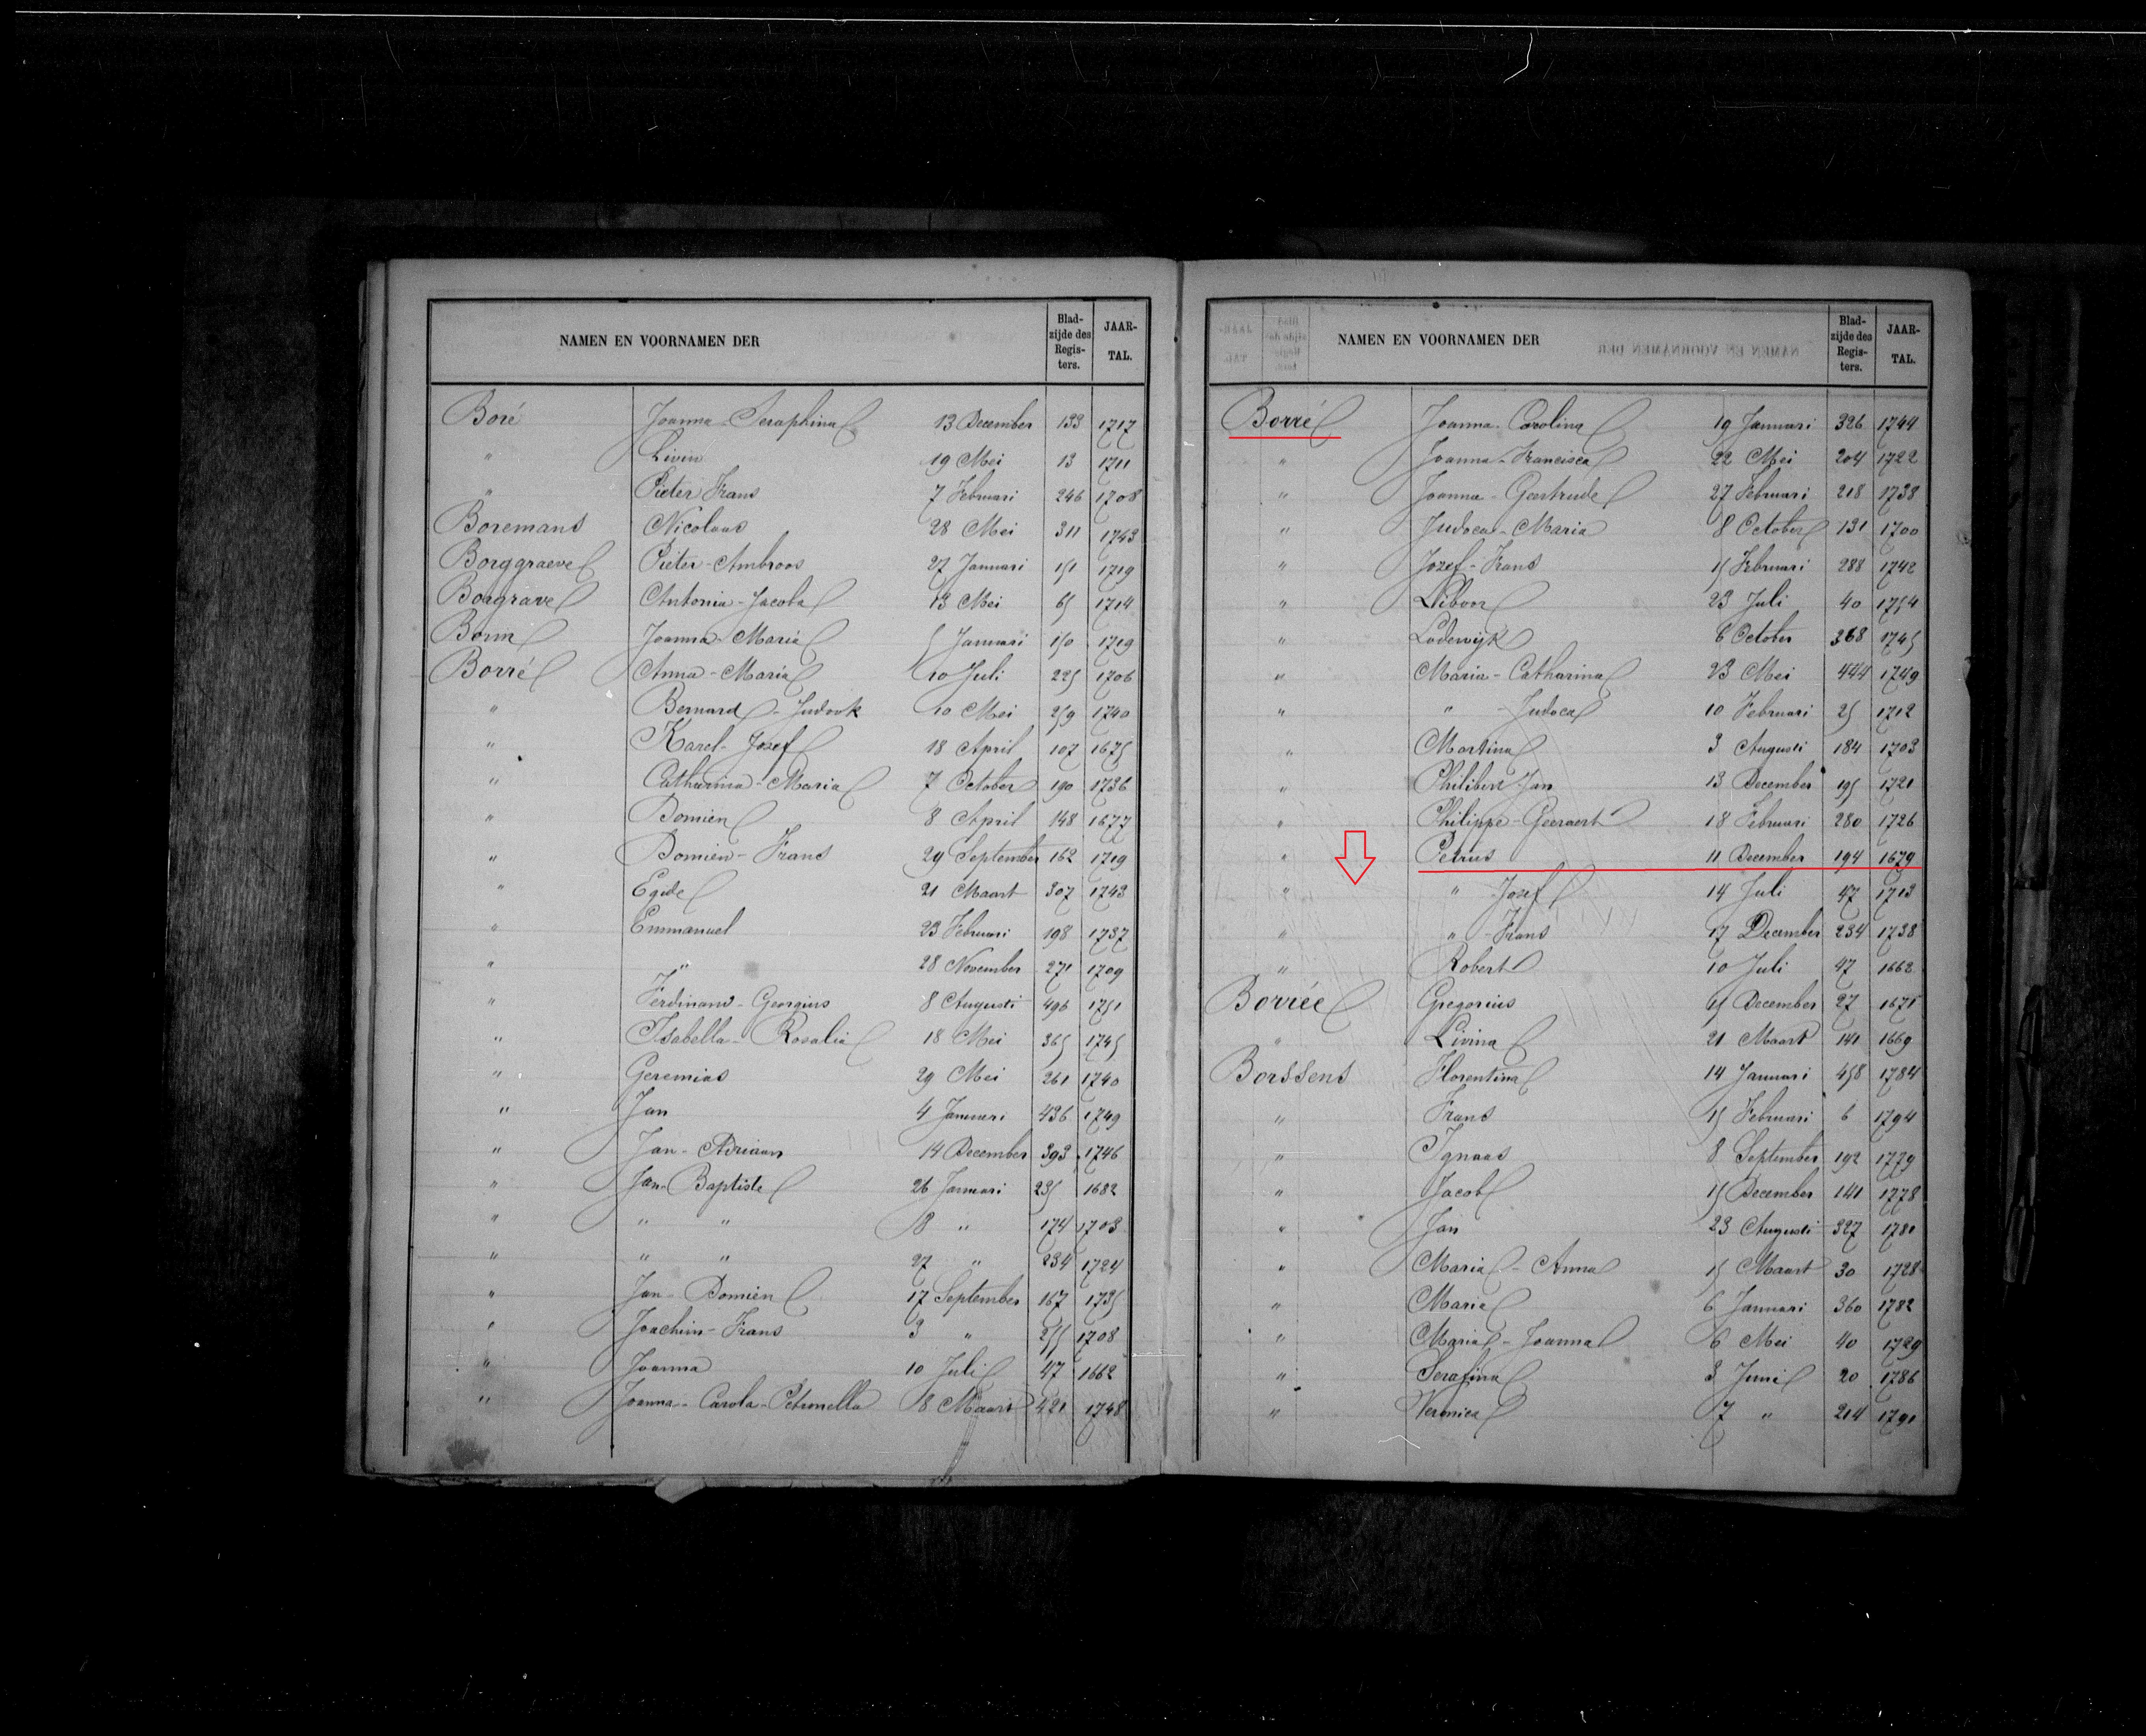 NAMEN EN VOORNAMEN DER Bladzijde des Registers. JAARTAL.
Boré Joanna-Seraphina 13 December 133 1717
" Livin 19 Mei 13 1711
" Pieter Frans 7 Februari 246 1708
Boremans Nicolaas 28 Mei 311 1743
Borggraeve Pieter-Ambroos 27 Januari 151 1719
Borgrave Antonia-Jacoba 13 Mei 65 1714
Joanna-Maria 5 Januari 150 1719
Borré Anna-Maria 10 Juli 225 1706
" Bernard-Judook 10 Mei 259 1740
" Karel-Josef 18 April 107 1675
" Catharina-Maria 7 October 190 1736
" Domien 8 April 148 1677
" Domien-Frans 29 September 162 1719
" Egide 21 Maart 307 1743
" Emmanuel 23 Februari 198 1737
" " 28 November 271 1709
" Ferdinand-Georgius 8 Augusti 496 1751
" Isabella-Rosalia 18 Mei 365 1745
" Geremias 29 Mei 261 1740
" Jan 4 Januari 436 1749
" Jan-Adriaan 14 December 393 1746
" Jan-Baptiste 26 Januari 235 1682
" " " 8 " 174 1703
" " " 27 " 234 1724
" Jan-Domien 17 September 167 1735
" Joachim-Frans 3 " 255 1708
" Joanna 10 Juli 47 1662
" Joanna-Carola-Petronella 8 Maart 421 1748
NAMEN EN VOORNAMEN DER Bladzijde des Registers. JAARTAL.
Borré Joanna-Carolina 19 Januari 326 1744
" Joanna-Francisca 22 Mei 204 1722
" Joanna-Geertrude 27 Februari 218 1738
" Judoca-Maria 8 October 131 1700
" Jozef-Frans 15 Februari 288 1742
" Liboor 23 Juli 40 1754
" Lodewijk 6 October 368 1745
" Maria-Catharina 23 Mei 444 1749
" " -Judoca 10 Februari 25 1712
" Martina 3 Augusti 184 1703
" Philibert-Jan 13 December 195 1721
" Philippe-Geeraert 18 Februari 280 1726
" Petrus 11 December 194 1679
" " Josef 14 Juli 47 1713
" " -Frans 17 December 234 1738
" Robert 10 Juli 47 1662
Borrée Gregorius 15 December 27 1671
" Livina 21 Maart 141 1669
Borssens Florentina 14 Januari 458 1784
" Frans 15 Februari 6 1794
" Ignaas 8 September 192 1779
" Jacob 15 December 141 1778
" Jan 23 Augusti 327 1781
" Maria-Anna 15 Maart 30 1728
" Maria 6 Januari 360 1782
" Maria-Joanna 6 Mei 40 1729
" Serafina 3 Juni 20 1786
" Veronica 7 " 214 1791